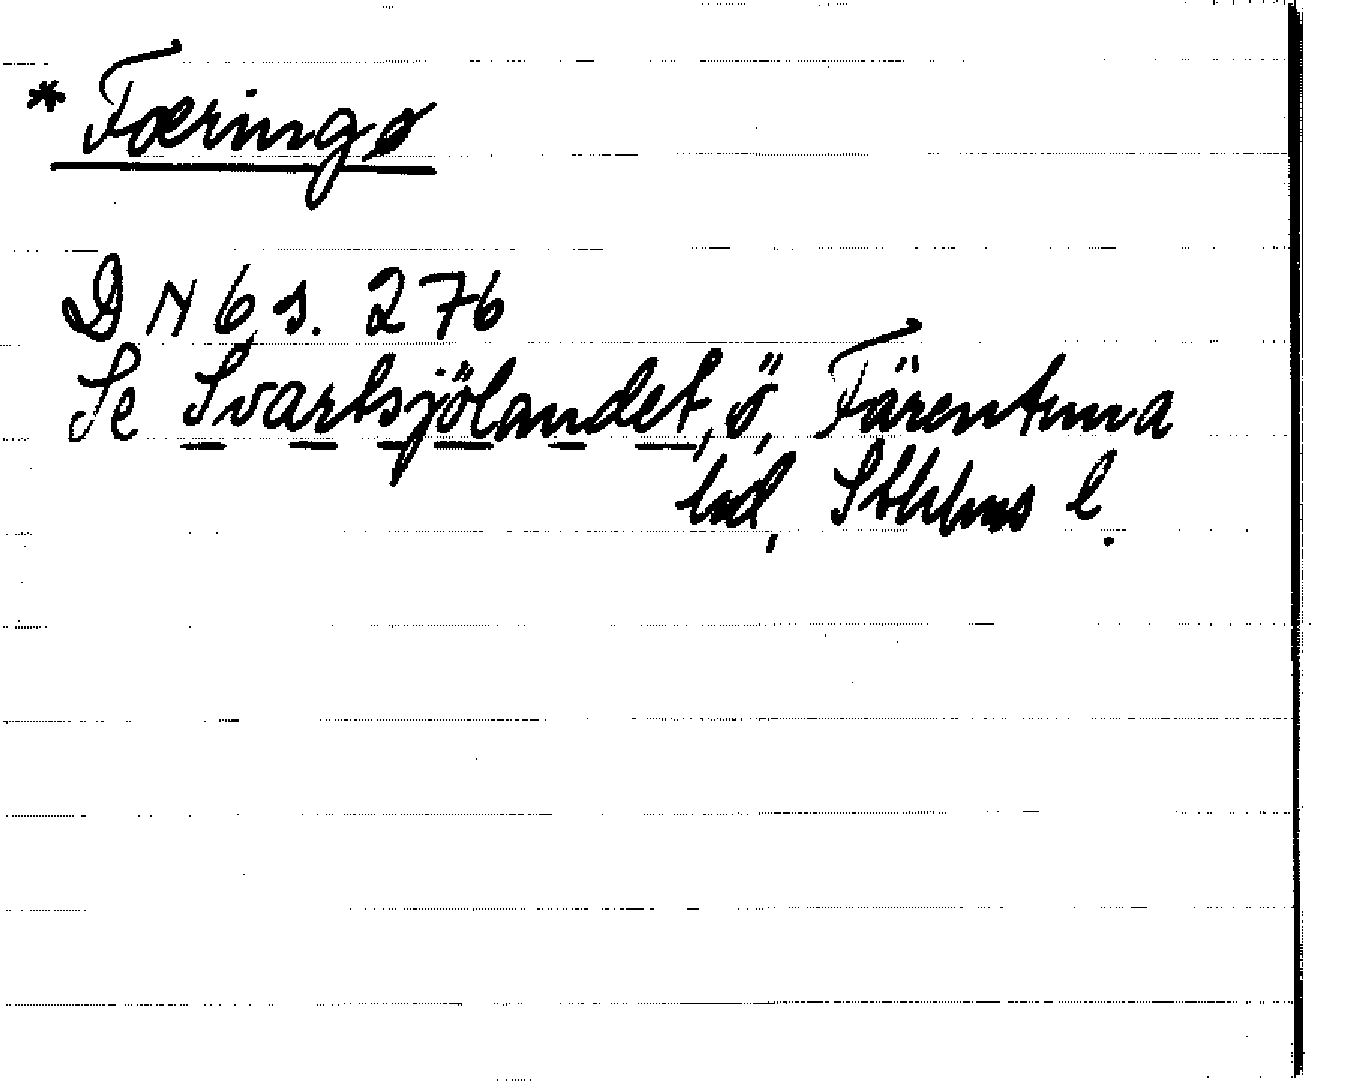 * Færingø
DN 6 s. 276
Se Svartsjölandet, ö, Färentuna
hd, Sthlms l.